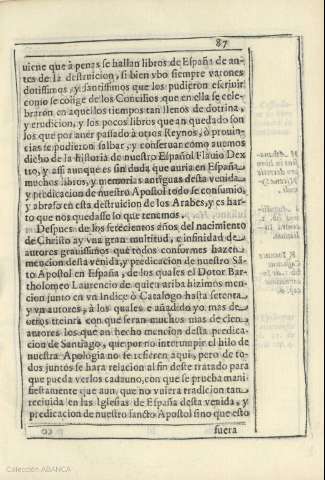 87
uiene que à penas se hallan libros de España de an-
tes de la destruicion, si bien vbo siempre varones
dotissimos, y santissimos que los pudieron escriuir
como se colige de los Concilios que en ella se cele-
braron en aquellos tiempos tan llenos de dotrina,
y erudicion, y los pocos libros que an quedado son
los que por auer passado à otros Reynos, ò prouin-
cias se pudieron saluar, y conseruar como auemos
dicho de la historia de nuestro Español Flauio Dex
tro, y assi aunque es sin duda que auria en España
muchos libros, y memorias antiguas desta venida
y predicacion de nuestro Apostol todo se consumio,
y abrasò en esta destruicion de los Arabes, y es har-
to que nos quedasse lo que tenemos.
Despues de los setecientos años del nacimiento
de Christo ay vna gran multitud, e infinidad de
autores grauissimos que todos conformes hazen
mencion desta venida, y predicacion de nuestro Sā-
to Apostol en España, de los quales el Dotor Bar-
tholomeo Laurencio de quien ariba hizimos men-
cion junto en vn Indice ò Catalogo hasta setenta
y vn autores, à los quales e añadido yo mas de
otros treinta con que seran muchos mas de cien
autores los que an hecho mencion desta predica-
cion de Santiago, que por no interrumpir el hilo de
nuestra Apologia no se refieren aqui, pero de to-
dos juntos se hara relacion al fin deste tratado para
que pueda verlos cadauno, con que se prueua mani-
fiestamente que aun, que no vuiera tradicion tan
reciuida en las Iglesias de España desta venida, y
predicacion de nuestro sancto Apostol sino que esto
fuera
Colección ABANCA